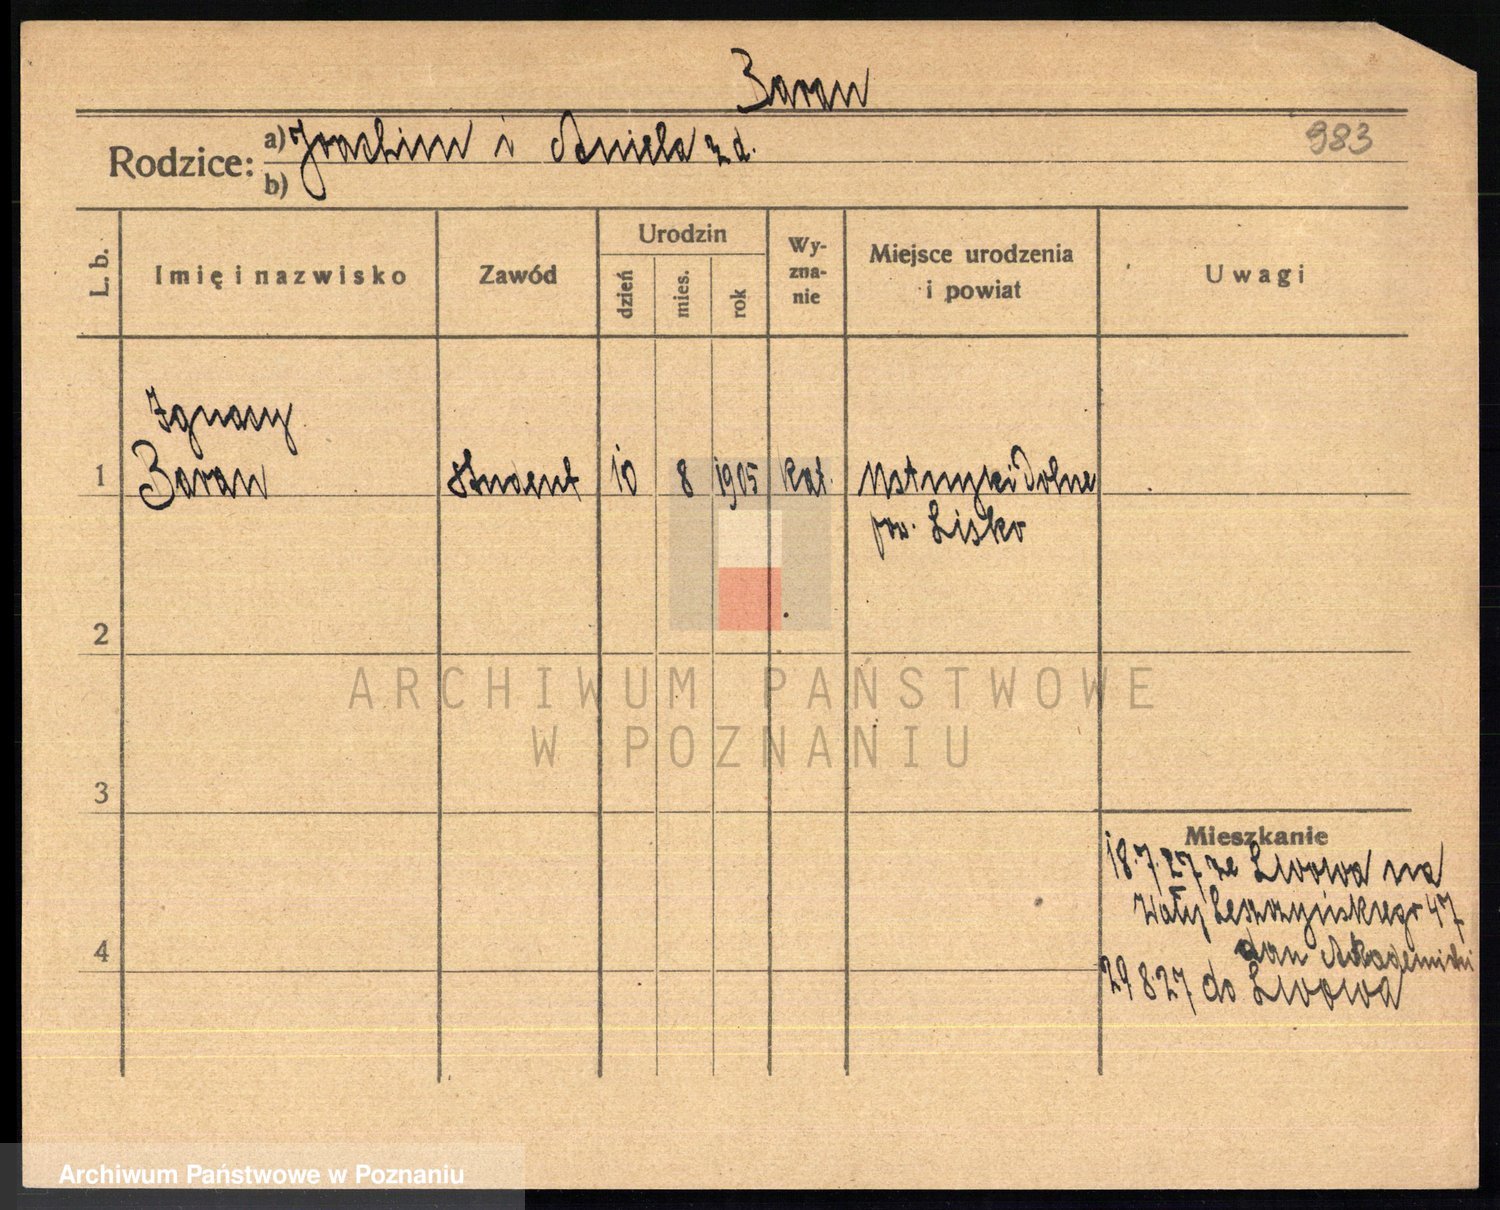 Baran
Rodzice: a) Joachim i Aniela z d.
b)
983
L. b.
Imię i nazwisko
Zawód
Urodzin
dzień
mies.
rok
Wy-
zna-
nie
Miejsce urodzenia
i powiat
Uwagi
Ignacy
1 Baran Student 10 8 1905 kat. Ustrzyki Dolne
pow. Lisko
2
3
4
Mieszkanie
18.7.27 ze Lwowa na
Wały Leszczyńskiego 47
dom Akademicki
29 8 27 do Lwowa
ARCHIWUM PAŃSTWOWE
W POZNANIU
Archiwum Państwowe w Poznaniu